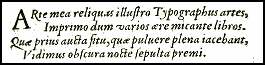 ARte mea reliquas illustro Typographus artes,
Imprimo dum varios ære micante libros.
Quæ prius aucta situ, quæ puluere plena iacebant,
Vidimus obscura nocte sepulta premi.